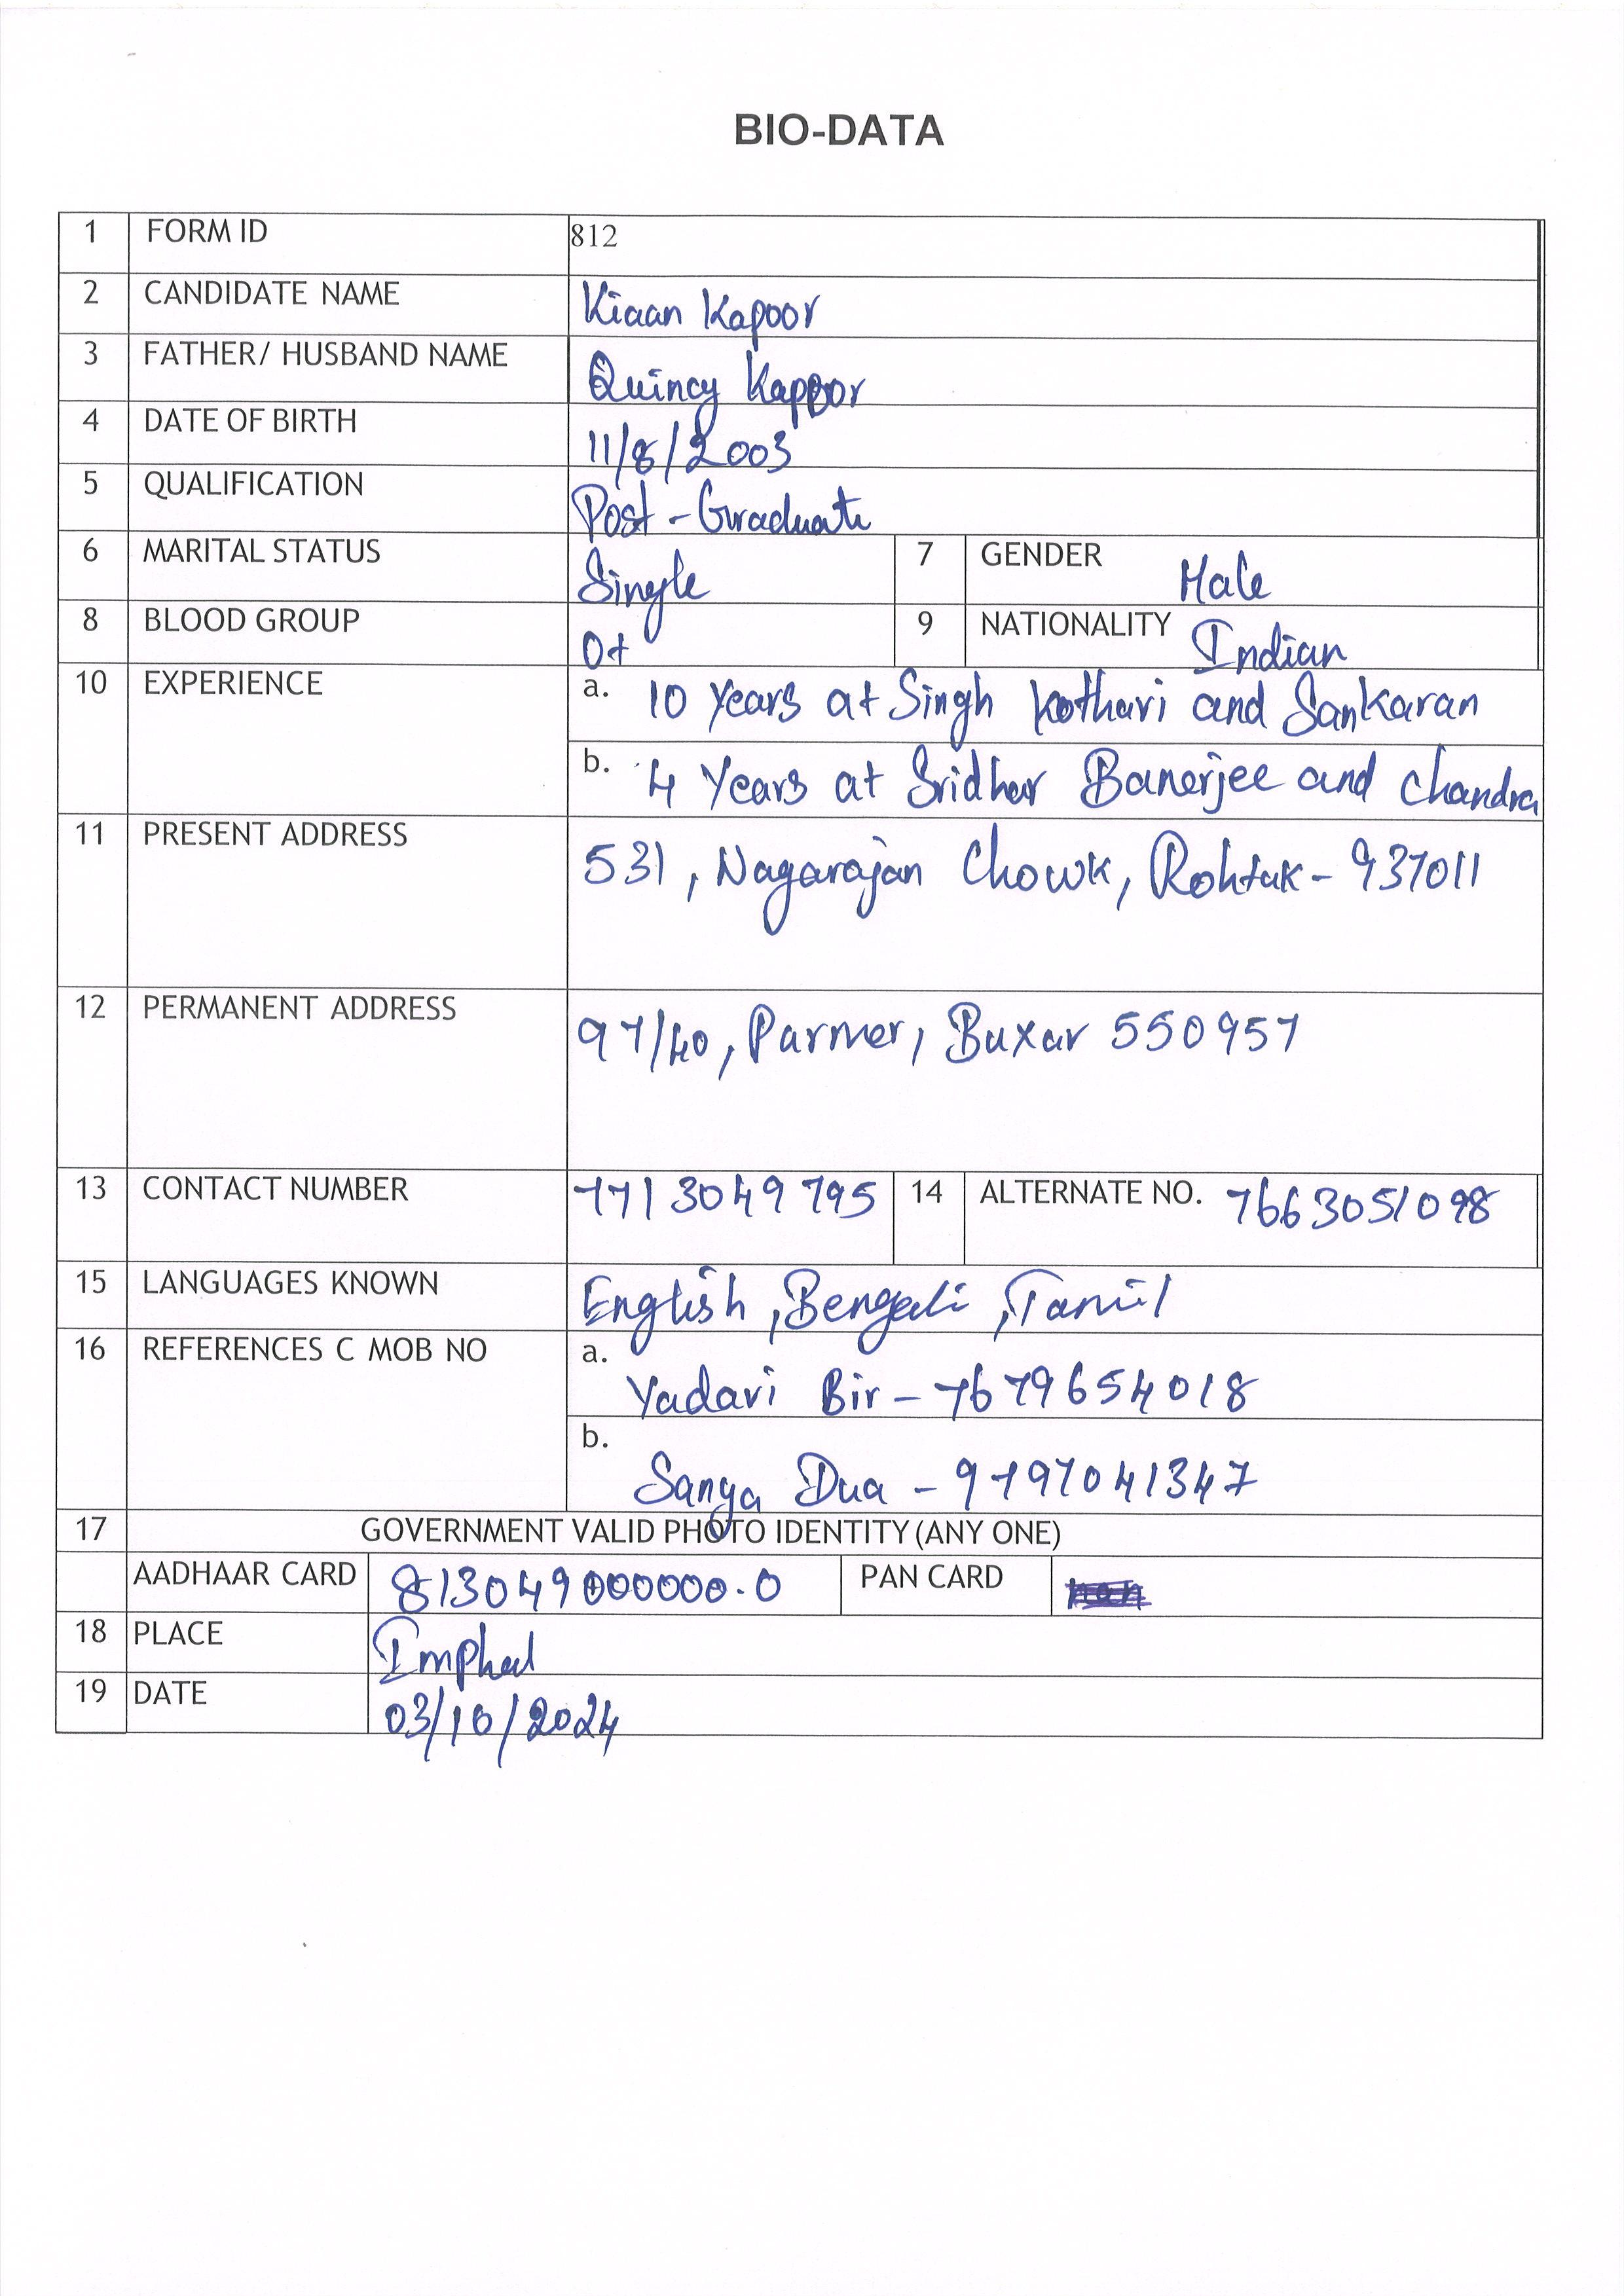 BIO-DATA
1 FORM ID 812
2 CANDIDATE NAME Kiaan Kapoor
3 FATHER/ HUSBAND NAME Quincy Kapoor
4 DATE OF BIRTH 11/8/2003
5 QUALIFICATION Post-Graduate
6 MARITAL STATUS Single 7 GENDER Male
8 BLOOD GROUP O+ 9 NATIONALITY Indian
10 EXPERIENCE a. 10 Years at Singh Kothari and Sankaran
b. 4 Years at Sridhar Banerjee and Chandra
11 PRESENT ADDRESS 531, Nagarajan Chowk, Rohtak-937011
12 PERMANENT ADDRESS 97/40, Parmer, Buxar 550957
13 CONTACT NUMBER 7713049795 14 ALTERNATE NO. 7663051098
15 LANGUAGES KNOWN English, Bengali, Tamil
16 REFERENCES C MOB NO a. Yadavi Bir-7679654018
b. Sanya Dua-9797041347
17 GOVERNMENT VALID PHOTO IDENTITY (ANY ONE)
AADHAAR CARD 813049000000.0 PAN CARD
18 PLACE Imphal
19 DATE 03/10/2024